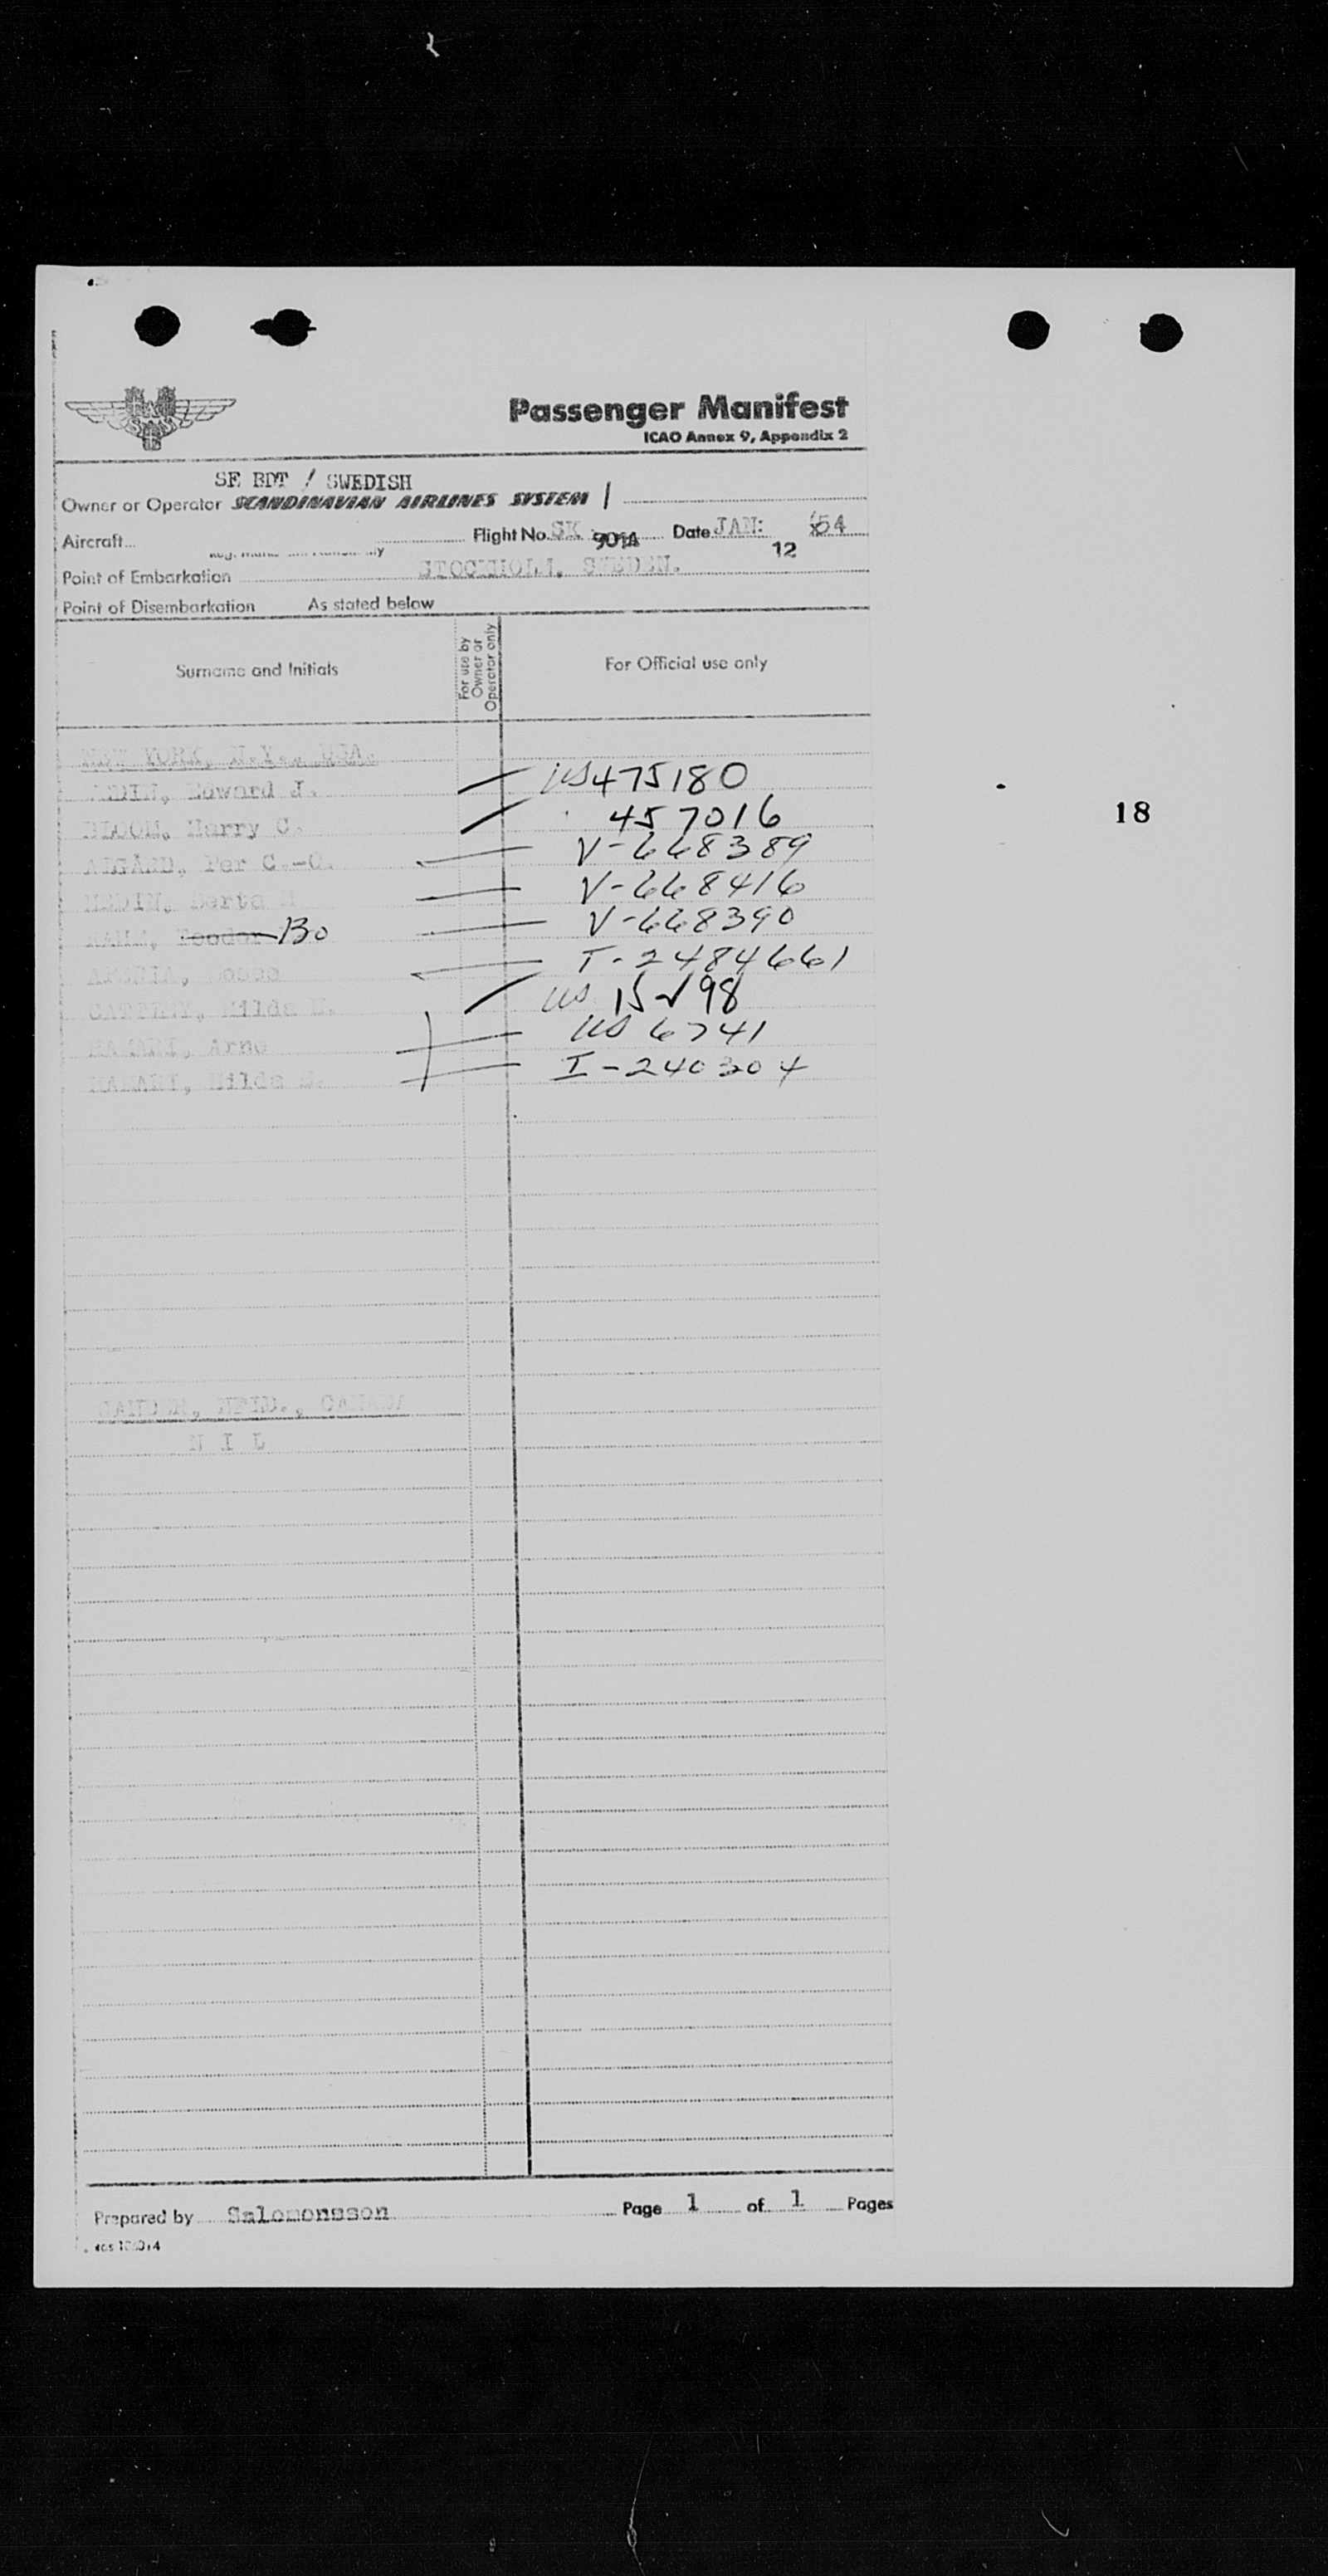 Passenger Manifest
ICAO Annex 9, Appendix 2
SE BDT / SWEDISH
Owner or Operator SCANDINAVIAN AIRLINES SYSTEM
Aircraft Flight No. SK 901A Date JAN: 12 '54
Point of Embarkation STOCKHOLM, SWEDEN.
Point of Disembarkation As stated below
Surname and Initials
For use by Owner or Operator only
For Official use only
NEW YORK, N.Y., USA.
Edward J. US 475180
BLOOM, Harry C. 457016
Per C.-O. V-668389
HEDIN, V-668416
Teodor Bo V-668390
T-2484661
Hilda US
Arne US 6741
Hilda I-240304
18
GANDER, NFLD., CANADA
N I L
Prepared by Salomonsson Page 1 of 1 Pages